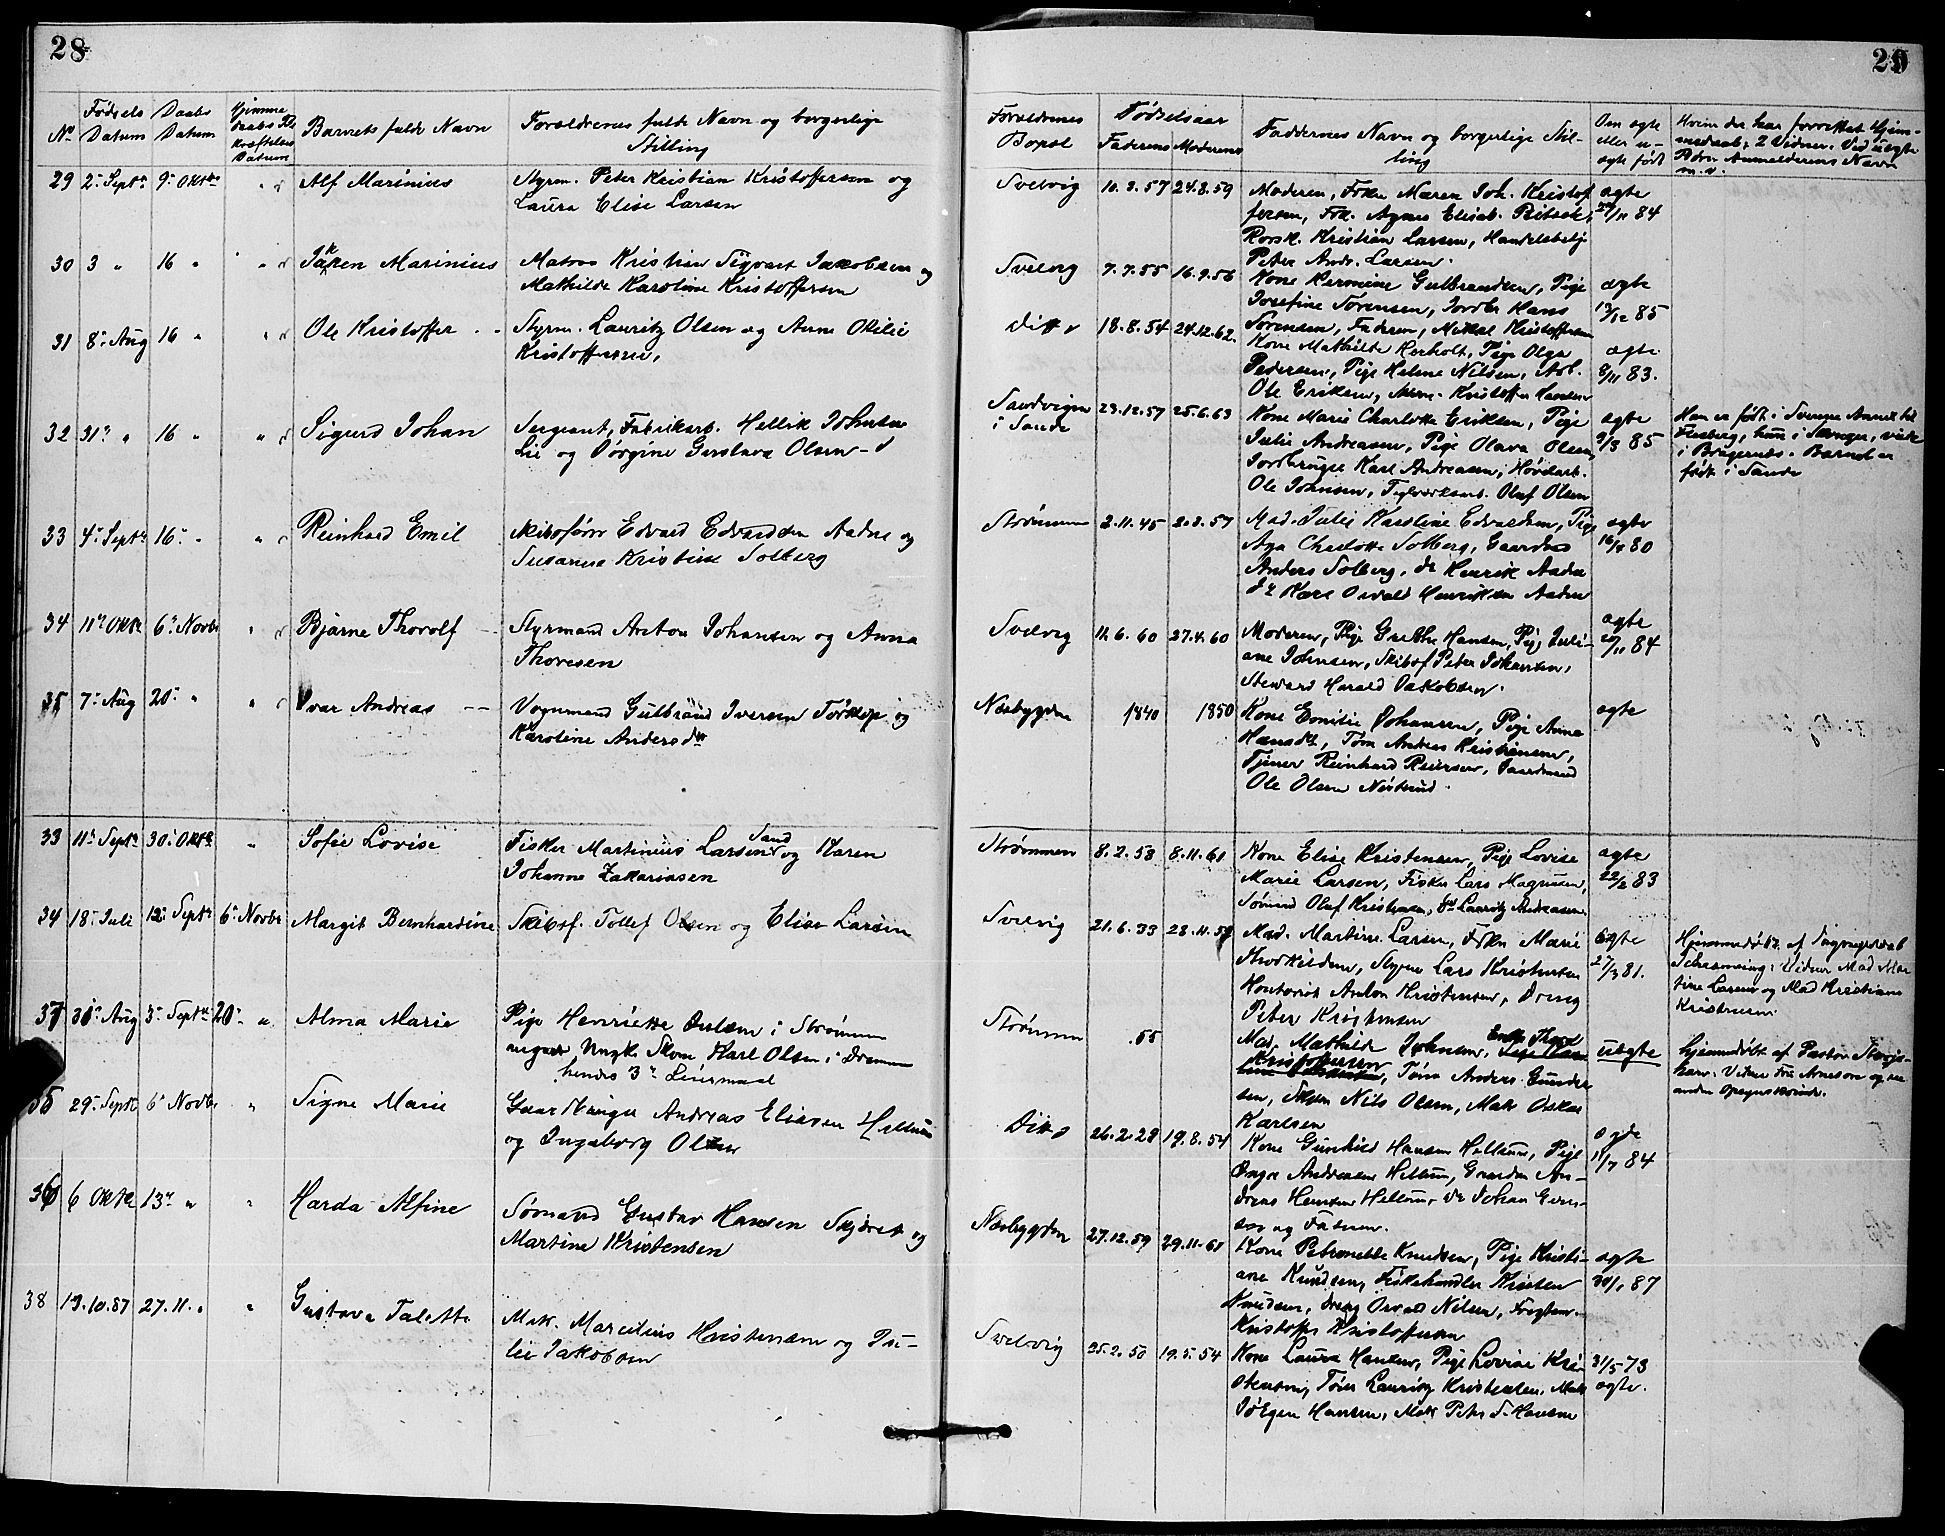 28
29
Nº
Fødsels Datum
Daabs Datum
Hjemme daabs Be kræftelses Datum
Barnets fulde Navn
Forældrenes fulde Navn og borgerlige Stilling
Forældrenes Bopæl
Fødselsaar
Faderens
Moderens
Faddernes Navn og borgerlige Stilling
Om ægte eller uægte født
Hvem der har forrettet Hjemmedaab, 2 Vidner. Ved uægte Børn Anmelderens Navn m. v.
29 2. Septr 9. Oktbr " Alf Marinius
Styrm. Peter Kristian Kristoffersen og
Laura Elise Larsen
Svelvig 24.8.59
Moderen, Frkn Maren Joh. Kristof
fersen, Frk. Agnes Elisab.
Kristian Larsen, Handelsbetj
Peter Andr. Larsen.
ægte
84
30 3 " 16 " " Marinius
Matros Kristian Sigvart Jakobsen og
Mathilde Karoline Kristoffersen
Svelvig 7.7.55 16.9.56
Kone Hermine Gulbrandsen, Pige
Josefine Sørensen, Jordbr Hans
Sørensen, Faderen, Mikkel Kristoffersen
ægte
85
31 8. Aug 16 " " Ole Kristoffer
Styrm. Lauritz Olsen og Anne Otilie
Kristoffersen,
Ditto 18.8.54 24.12.62.
Kone Mathilde Herholt, Pige Olga
Pedersen, Pige Helene Nilsen, Arb.
Ole Eriksen, Kristoffer Hansen
ægte
8/11 83.
32 31. " 16 " " Sigurd Johan
Sergeant, Fabrikarb. Hellik Johnsen
Lie og Jørgine Gustava Olsen
Sandvigen
i Sande
23.12.57 25.6.63
Kone Marie Charlotte Eriksen, Pige
Julie Andreasen, Pige Olava Olsen,
Jordbruger Karl Andreasen, Høvlarb.
Ole Johnsen, Teglværksarb. Olaf Olsen
ægte
85
Han er født i Svene Annex til
Flesberg, hun i viede
i Bragernes. Barnet er
født i Sande
33 4. Septr 16. " " Reinhard Emil
Skibsfører Edvard Edvardsen Aadne og
Susanna Kristine Solberg
Strømmen 2.11.45 2.8.57
Mad. Julie Karoline Edvardsen, Pige
Aga Charlotte Solberg, Gaardbr
Anders Solberg, do Henrik Aadne
do Karl Osvald Henriksen Aadne
ægte
80
34 11. Oktbr 6. Novbr " Bjarne Thorolf
Styrmand Anton Johansen og Anna
Thoresen
Svelvig 11.6.60 27.4.60
Moderen, Pige Grethe Hansen, Pige Juli-
ane Johnsen, Skibsf Peter Johansen,
Steward Harald Jakobsen.
ægte
84
35 7. Aug 20. " " Ivar Andreas
Vognmand Gulbrand Iversen Tørkop og
Karoline Andersdtr
Nesbygden 1840 1850
Kone Emilie Johansen, Pige Anna
Hansdtr, Tøm Andreas Kristiansen,
Tjener Reinhard Reiersen, Gaardmand
Ole Olsen
ægte
33 11. Septr 30. Oktbr " Sofie Lovise
Fisker Martinius Larsen Sand og Karen
Johanne Zakariasen
Strømmen 8.2.58 8.11.61
Kone Elise Kristensen, Pige Lovise
Marie Larsen, Fisker Lars Magnusen,
Sømand Olaf Kristensen, do Lauritz Andreasen.
ægte
22/2 83
34 18. Juli 12. Septr 6. Novbr Margit Bernhardine
Skibsf. Tollef Olsen og Elise Larsen
Svelvig 21.6.33 28.11.59
Mad. Martine Larsen, Frkn Marie
Thorkildsen, Styrm Lars Kristensen
Kontorist Anton Kristensen, Dreng
Peter Kristensen
ægte
27/3 81.
Hjemmedøbt af
Vidner Mad Mar
tine Larsen og Mad Kristiane
Kristensen.
37 30. Aug 3. Septr 20. " Alma Marie
Pige Henriette i Strømmen
Ungk. Skom Karl Olsen i Drammen
hendes 3. Leiermaal
Strømmen 55
Mad. Mathilde Johnsen, Enke Thora
Kristoffersen, Tøm Anders Gunder
sen, Skom Nils Olsen, Matr Oskar
Karlsen
uægte
Hjemmedøbt af Pastor
Vidner Fru Arnesen og en
anden
35 29. Septr 6. Novbr " Signe Marie
Gaardbruger Andreas Eliasen Hellum
og Ingeborg Olsen
Ditto 26.2.28 19.8.54
Kone Gunhild Hansen Hellum, Pige
Inga Andreasen Hellum, Gaardm An-
dreas Hansen Hellum, do Johan
og Faderen.
ægte
84
36 6 Oktbr 13. " " Harda Alfine
Sømand Gustav Hansen og
Martine Kristensen
Nesbygden 27.12.59 29.11.61
Kone Petronelle Knudsen, Pige Kristi-
ane Knudsen, Fiskehandler Kristen
Knudsen, Dreng Osvald Nilsen,
Kristoffer Kristoffersen
ægte
87
38 19.10.87 27.11. " " Gustava Talette
Matr. Marcelius Kristensen og Ju-
lie Jakobsen
Svelvig 25.2.50 19.5.54
Kone Laura Hansen, Pige Lovise Kri-
stensen, Tøm Lauritz Kristensen, Matr
Jørgen Hansen, Matr Peter S. Hansen
31/5 73
ægte.